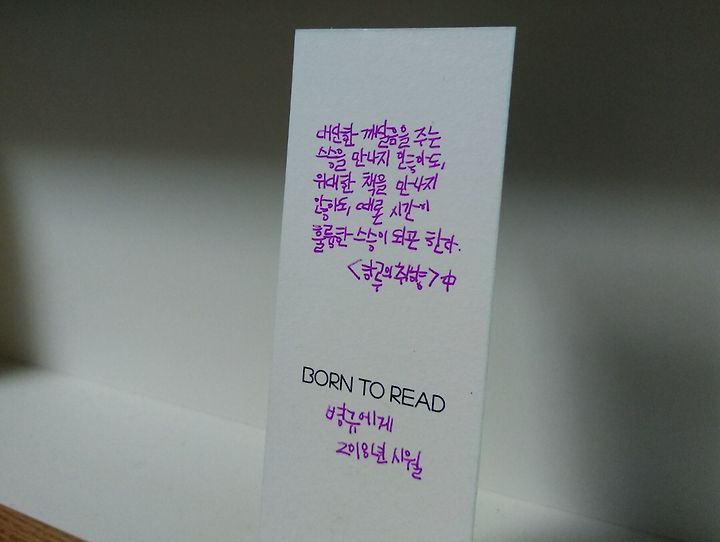 대단한 깨달음을 주는
스승을 만나지 않아도,
위대한 책을 만나지
않아도, 때론 시간이
훌륭한 스승이 되곤 한다.
<하루의 취향>中
BORN TO READ
병규에게
2018년 시월